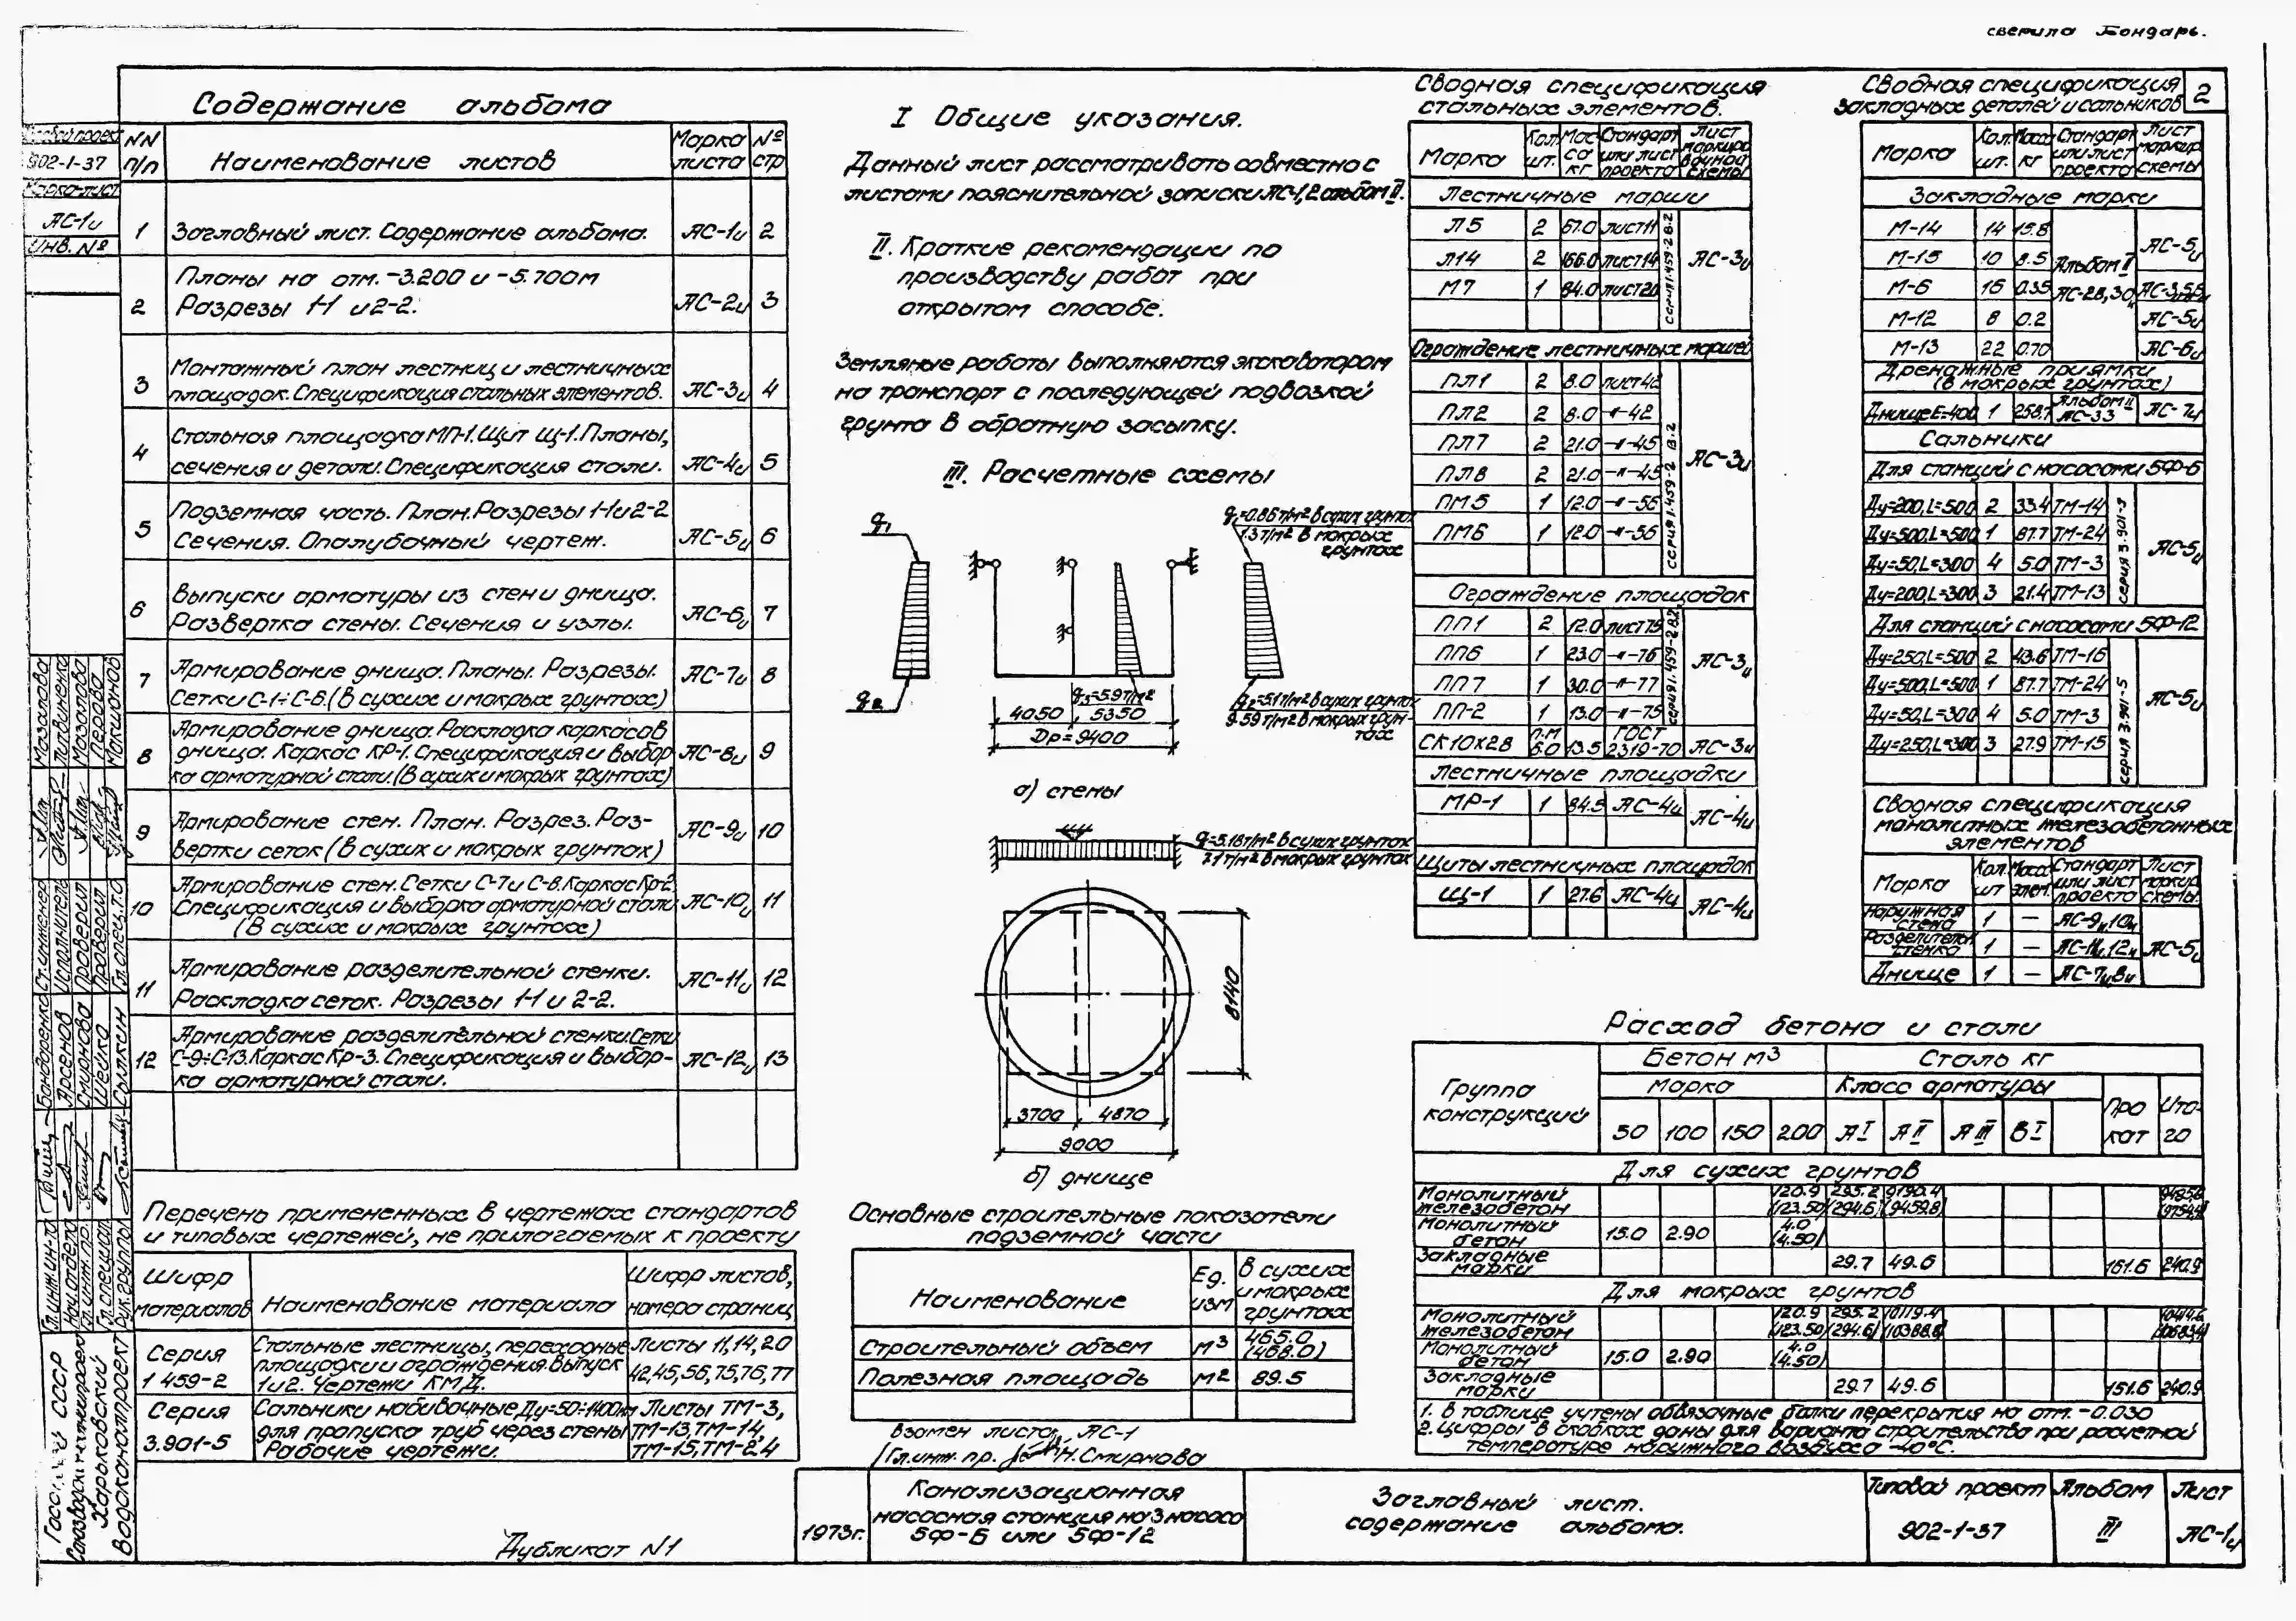 сверила Бондарь.
2
Содержание альбома
NN п/п
Наименование листов
Марка листа
№ стр
1 Заглавный лист. Содержание альбома. АС-1и 2
Планы на отм. -3.200 и -5.700м
2 Разрезы 1-1 и 2-2. АС-2и 3
Монтажный план лестниц и лестничных
3 площадок. Спецификация стальных элементов. АС-3и 4
Стальная площадка МП-1. Щит Щ-1. Планы,
4 сечения и детали. Спецификация стали. АС-4и 5
Подземная часть. План. Разрезы 1-1 и 2-2
5 Сечения. Опалубочный чертеж. АС-5и 6
Выпуски арматуры из стен и днища.
6 Развертка стены. Сечения и узлы. АС-6и 7
Армирование днища. Планы. Разрезы.
7 Сетки С-1÷С-6. (в сухих и мокрых грунтах) АС-7и 8
Армирование днища. Раскладка каркасов
8 днища. Каркас КР-1. Спецификация и выбор АС-8и 9
ка арматурной стали. (в сухих и мокрых грунтах)
Армирование стен. План. Разрез. Раз-
9 вертки сеток (в сухих и мокрых грунтах) АС-9и 10
Армирование стен. Сетки С-7 и С-8. Каркас Кр-2
10 Спецификация и выборка арматурной стали АС-10и 11
(В сухих и мокрых грунтах)
Армирование разделительной стенки.
11 Раскладка сеток. Разрезы 1-1 и 2-2. АС-11и 12
Армирование разделительной стенки. Сетки
12 С-9÷С-13. Каркас Кр-3. Спецификация и выбор- АС-12и 13
ка арматурной стали.
Перечень примененных в чертежах стандартов
и типовых чертежей, не прилагаемых к проекту
Шифр материалов
Наименование материала
Шифр листов, номера страниц
Серия 1 459-2
Стальные лестницы, переходные
площадки и ограждения. Выпуск
1 и 2. Чертежи КМД.
Листы 11,14,20
42,45,56,75,76,77
Серия 3.901-5
Сальники набивочные Ду=50÷1400м
для пропуска труб через стены
Рабочие чертежи.
Листы ТМ-3,
ТМ-13, ТМ-14,
ТМ-15, ТМ-24
I Общие указания.
Данный лист рассматривать совместно с
листами пояснительной записки АС-1,2 альбом II.
II. Краткие рекомендации по
производству работ при
открытом способе.
Земляные работы выполняются экскаватором
на транспорт с последующей подвозкой
грунта в обратную засыпку.
III. Расчетные схемы
q1
q2
q1=0.86т/м2 в сухих грунтах
1.3т/м2 в мокрых грунтах
q3=5.9т/м2
q2=5.1т/м2 в сухих грунтах
9.59т/м2 в мокрых грун-
тах
4050 5350
Dр=9400
а) стены
q=5.16т/м2 в сухих грунтах
7.1т/м2 в мокрых грунтах
8140
3700 4870
9000
б) днище
Основные строительные показатели
подземной части
Наименование
Ед. изм
В сухих и мокрых грунтах
Строительный объем м3 465.0 (468.0)
Полезная площадь м2 89.5
Взамен листа АС-1
Гл. инж. пр. Н. Смирнова
Сводная спецификация
стальных элементов.
Марка
Кол. шт.
Мас са кг
Стандарт или лист проекта
Лист маркиро вочной схемы
Лестничные марши
Л5 2 67.0 лист 11
Л14 2 166.0 лист 14
М7 1 84.0 лист 20
серия 1.459-2 в.2
АС-3и
Ограждение лестничных маршей
ПЛ1 2 8.0 лист 42
ПЛ2 2 8.0 -"-42
ПЛ7 2 21.0 -"-45
ПЛ8 2 21.0 -"-45
ПМ5 1 12.0 -"-56
ПМ6 1 12.0 -"-56
серия 1.459-2 в.2
АС-3и
Ограждение площадок
ПП1 2 12.0 лист 75
ПП6 1 23.0 -"-76
ПП7 1 30.0 -"-77
ПП-2 1 13.0 -"-75
серия 1.459-2 в.2
АС-3и
СК10х28 п.м 6.0 13.5 ГОСТ 2319-70 АС-3и
Лестничные площадки
МР-1 1 84.5 АС-4и АС-4и
Щиты лестничных площадок
Щ-1 1 27.6 АС-4и АС-4и
Сводная спецификация
закладных деталей и сальников
Марка
Кол. шт.
Масса кг
Стандарт или лист проекта
Лист маркир схемы
Закладные марки
М-14 14 15.8
М-15 10 8.5
М-6 16 0.35
М-12 8 0.2
М-13 22 0.70
Альбом II
АС-28,30и
АС-5и
АС-3,5,6и
АС-5и
АС-6и
Дренажные приямки
(в мокрых грунтах)
Днище Е=400 1 258.7 Альбом II АС-33 АС-7и
Сальники
Для станций с насосами 5Ф-6
Ду=200, L=500 2 33.4 ТМ-14
Ду=500, L=500 1 87.7 ТМ-24
Ду=50, L=300 4 5.0 ТМ-3
Ду=200, L=300 3 21.4 ТМ-13
серия 3.901-5
АС-5и
Для станций с насосами 5Ф-12
Ду=250, L=500 2 43.6 ТМ-16
Ду=500, L=500 1 87.7 ТМ-24
Ду=50, L=300 4 5.0 ТМ-3
Ду=250, L=300 3 27.9 ТМ-15
серия 3.901-5
АС-5и
Сводная спецификация
монолитных железобетонных
элементов
Марка
Кол. шт
Масса элем.
Стандарт или лист проекта
Лист маркир схемы.
Наружная стена 1 — АС-9и,10и
Разделительн. стенка 1 — АС-11и,12и
Днище 1 — АС-7и,8и
АС-5и
Расход бетона и стали
Группа конструкций
Бетон м3
Сталь кг
Марка
Класс арматуры
Про кат
Ито- го
50 100 150 200 АI АII АIII ВI
Для сухих грунтов
Монолитный железобетон 120.9 (123.50) 295.2 (294.6) 9190.4 (9459.8)
Монолитный бетон 15.0 2.90 4.0 (4.50)
Закладные марки 29.7 49.6 161.6 240.9
Для мокрых грунтов
Монолитный железобетон 120.9 (123.50) 295.2 (294.6) 10119.4 (10388.8)
Монолитный бетон 15.0 2.90 4.0 (4.50)
Закладные марки 29.7 49.6 161.6 240.9
1. В таблице учтены обвязочные балки перекрытия на отм. -0.030
2. Цифры в скобках даны для варианта строительства при расчетной
температуре наружного воздуха -40°С.
1973г.
Канализационная
насосная станция на 3 насоса
5Ф-6 или 5Ф-12
Заглавный лист.
содержание альбома.
Типовой проект
902-1-37
Альбом
III
Лист
АС-1и
Дубликат N1
902-1-37
Марка-лист
АС-1и
Инв. №
Харьковский
Водоканалпроект